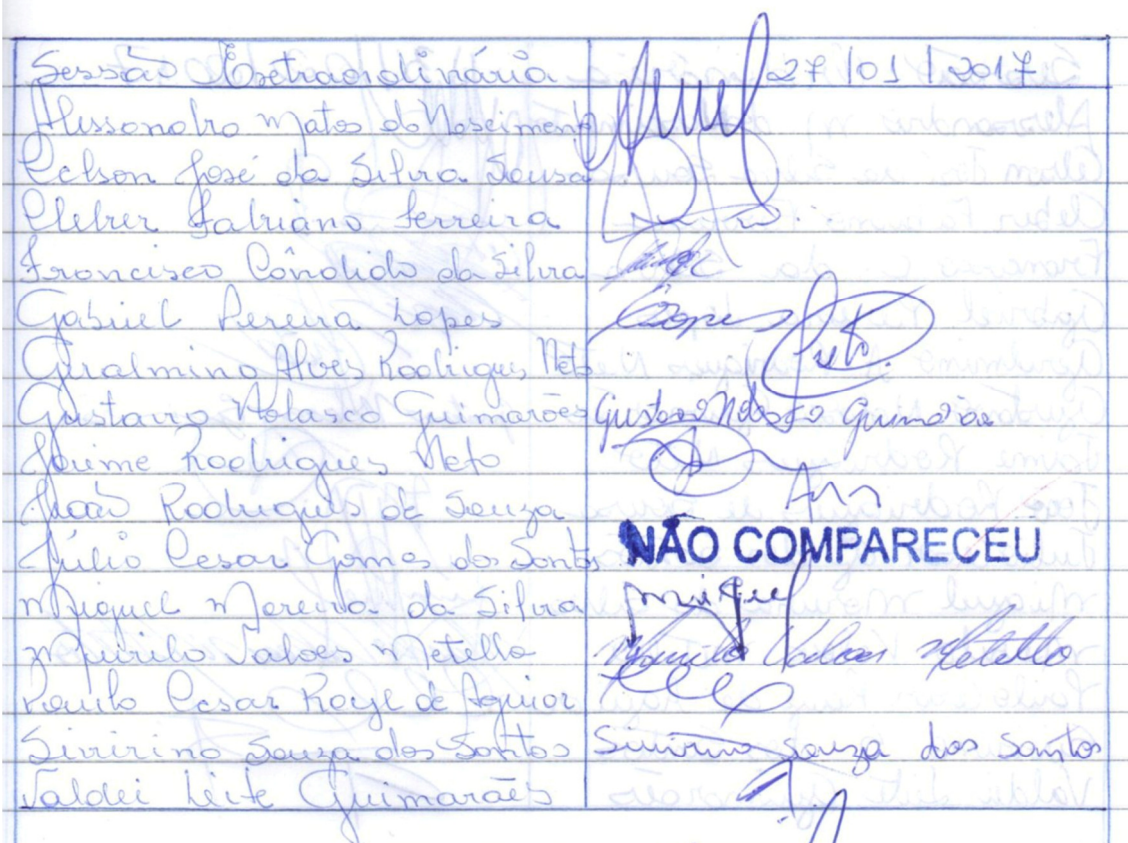 Sessão Extraordinária 27/01/2017
Alessandro Matos do Nascimento
Celson José da Silva Sousa
Cleber Fabiano Ferreira
Francisco Cândido da Silva
Gabriel Pereira Lopes Lopes
Geralmino Alves Rodrigues Neto
Gustavo Nolasco Guimarães Gustavo Nolasco Guimarães
Jaime Rodrigues Neto
João Rodrigues de Souza
Júlio Cesar Gomes dos Santos NÃO COMPARECEU
Miguel Moreira da Silva Miguel
Murilo Valoes Metello Murilo Valoes Metello
Paulo Cesar de Aguiar
Sivirino Souza dos Santos Sivirino Souza dos Santos
Valdei Leite Guimarães